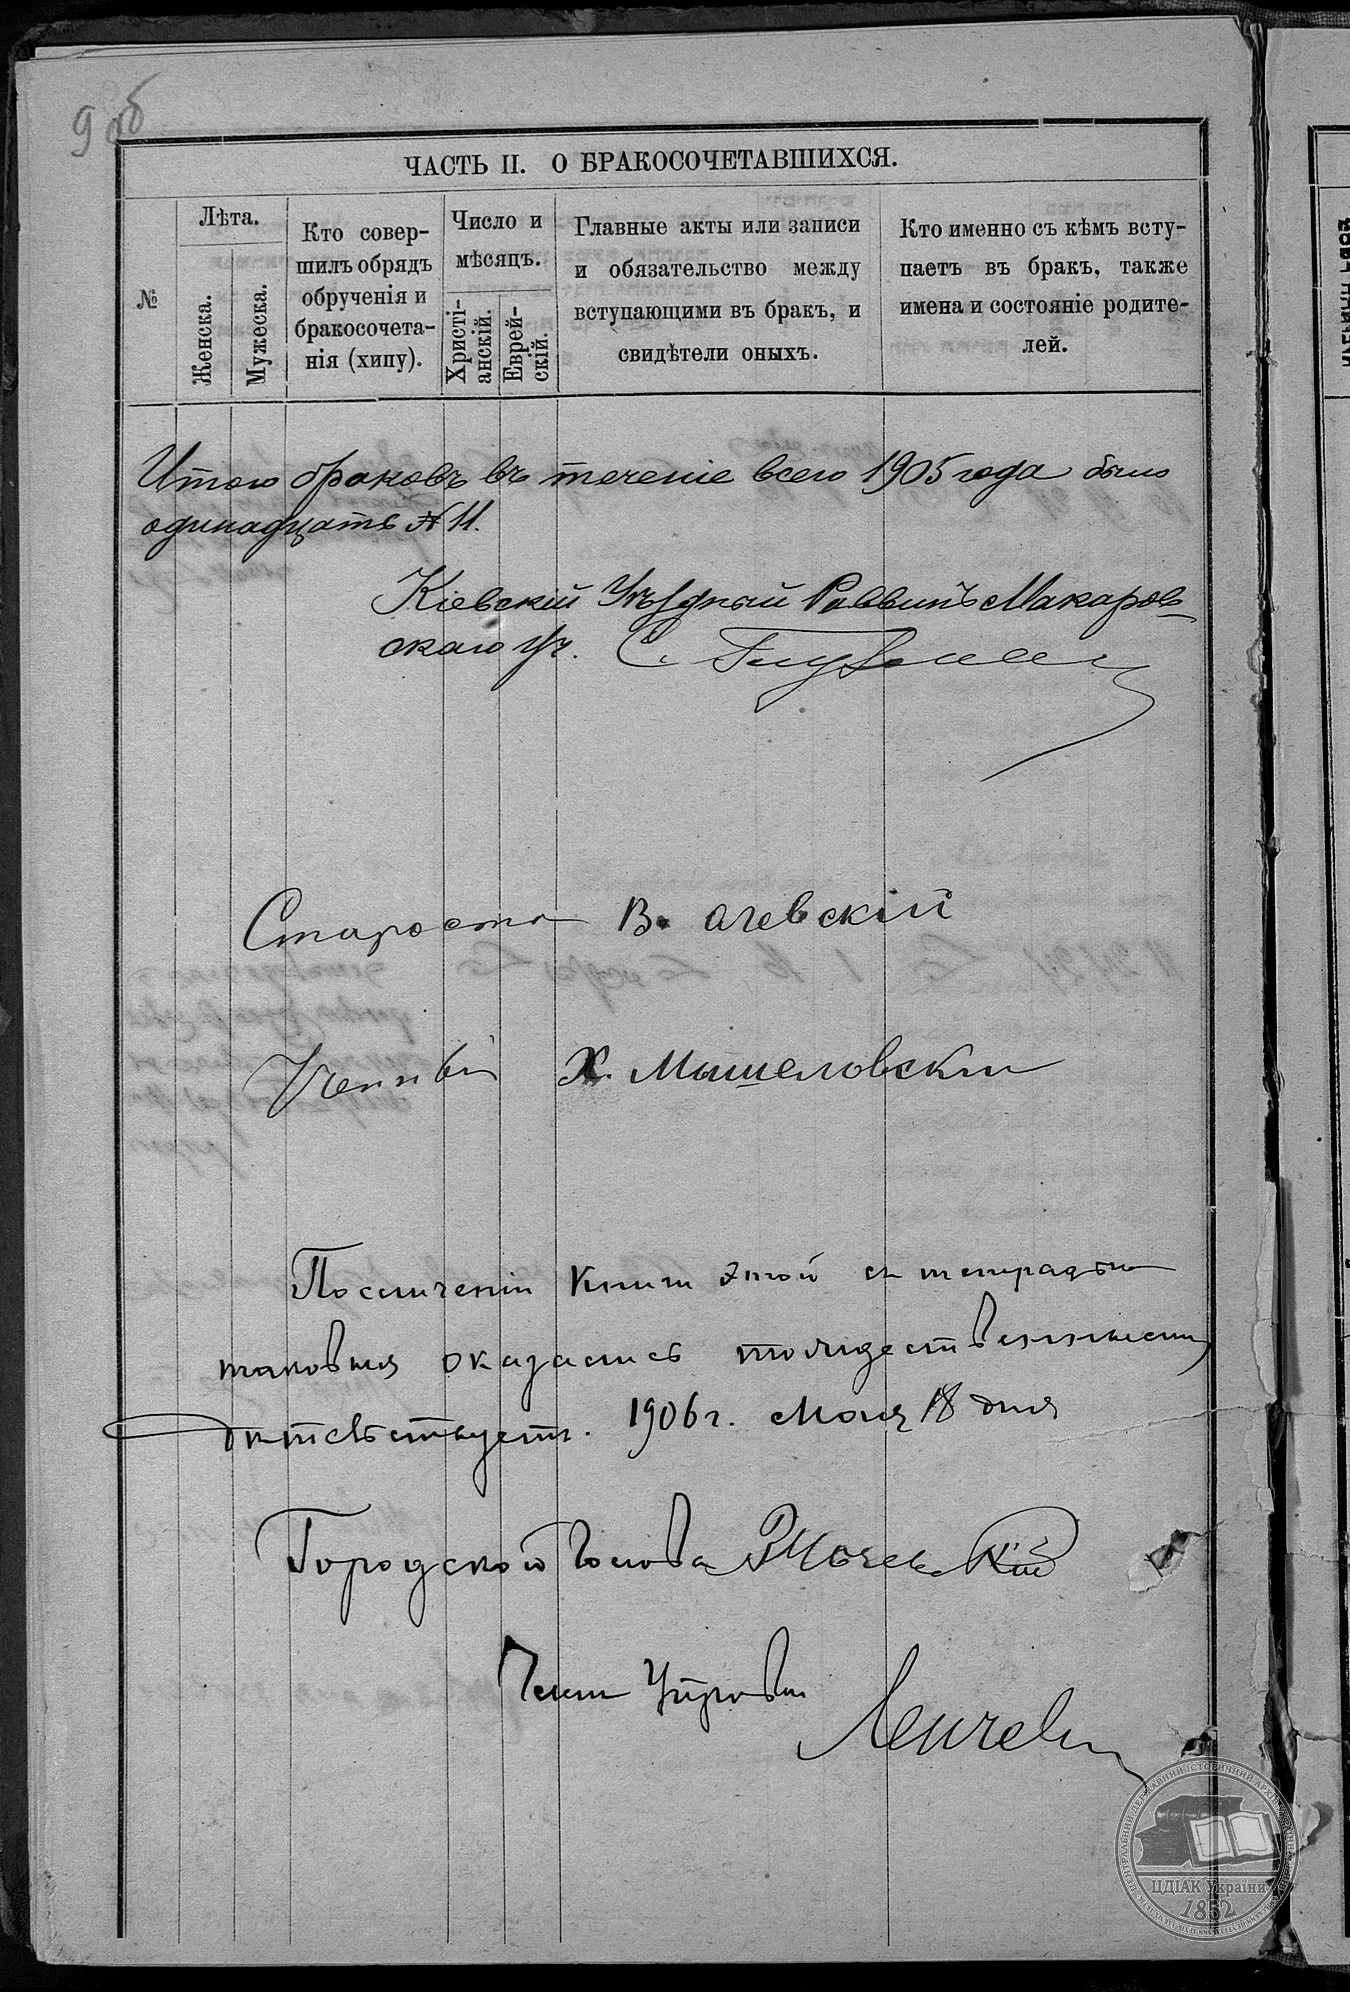 9 об
ЧАСТЬ II. О БРАКОСОЧЕТАВШИХСЯ.
№
Лѣта.
Женска.
Мужеска.
Кто совер-
шилъ обрядъ
обрученія и
бракосочета-
нія (хипу).
Число и
мѣсяцъ.
Христі-
анскій.
Еврей-
скій.
Главные акты или записи
и обязательство между
вступающими въ бракъ, и
свидѣтели оныхъ.
Кто именно съ кѣмъ всту-
паетъ въ бракъ, также
имена и состояніе родите-
лей.
Итого браковъ въ теченіе всего 1905 года было
одинадцать № 11.
Кіевскій Уѣздный Раввинъ Макаров-
скаго Уч. С.
Староста В.
Ученый Х. Мышеловскій
По сличеніи книги этой съ тетрадью
таковыя оказались тождественными
1906 г. Мая 18 дня
Городской Голова
Членъ Управы
ЦДІАК України
1852